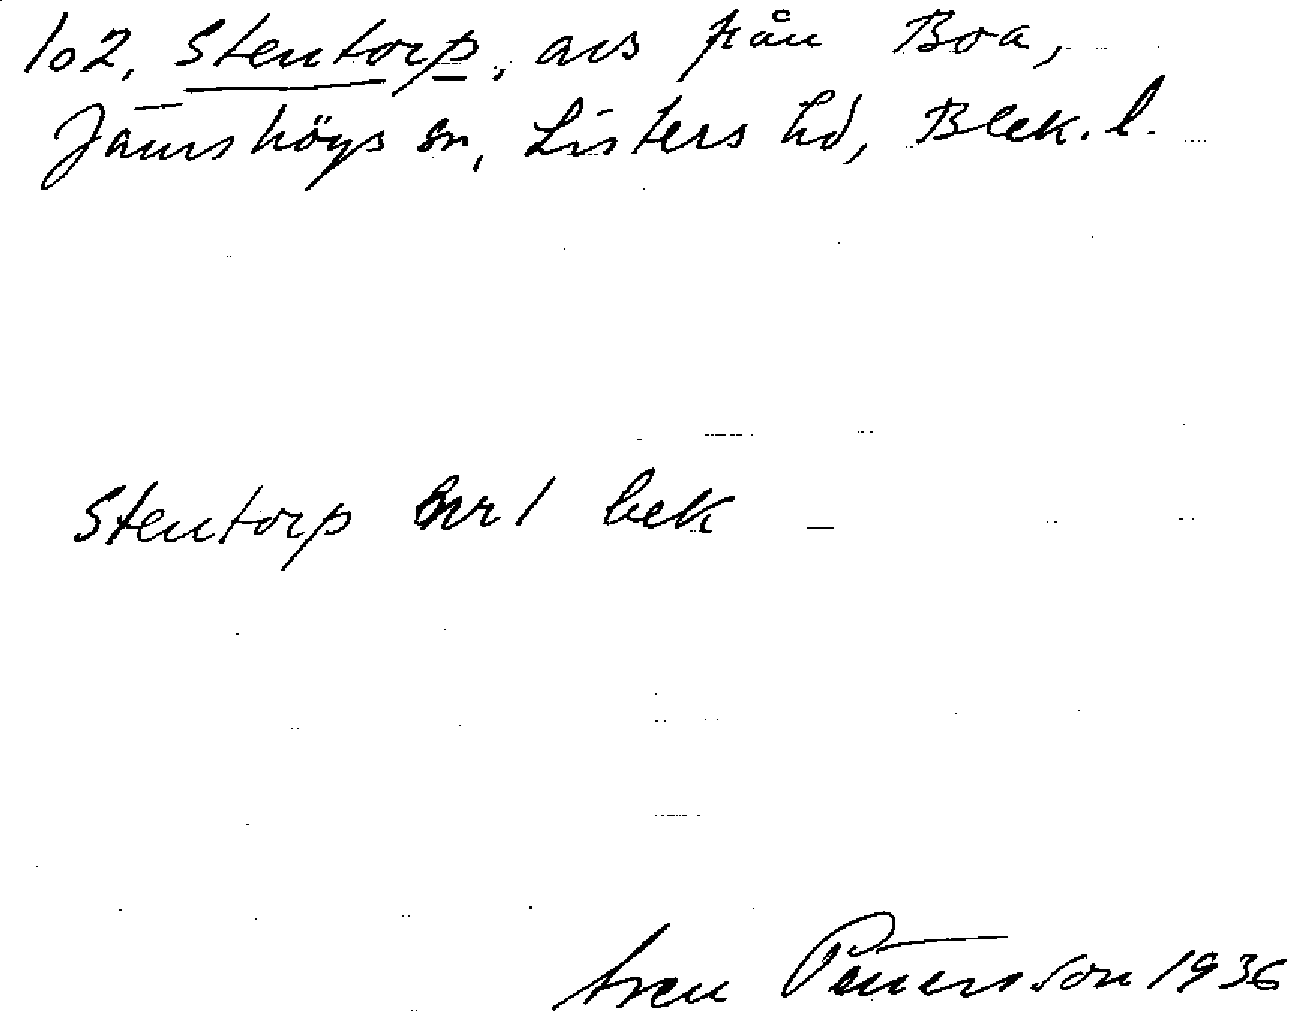 102. Stentorp, avs från Boa,
Jämshögs sn, Listers hd, Blek. l.
Stentorp nr 1 bek
Sven Pettersson 1936